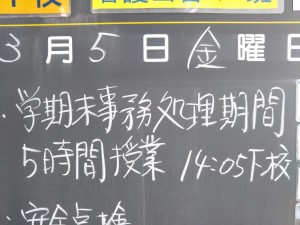 3月5日金曜日
・学期末事務処理期間
5時間授業 14:05下校
・安全点検